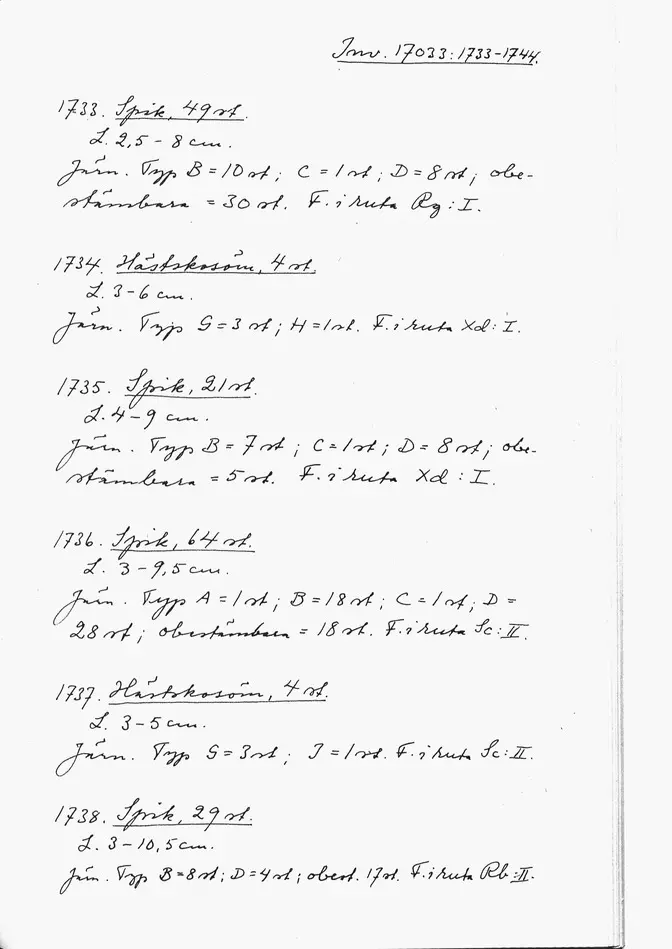 Inv. 17033:1733-1744.
1733. Spik, 49 st.
L. 2,5 - 8 cm.
Järn. Typ B = 10 st; C = 1 st; D = 8 st; obe-
stämbara = 30 st. F. i ruta Rg : I.
1734. Hästskosöm, 4 st.
L. 3-6 cm.
Järn. Typ G = 3 st; H = 1 st. F. i ruta Xd : I.
1735. Spik, 21 st.
L. 4-9 cm.
Järn. Typ B = 7 st; C = 1 st; D = 8 st; obe-
stämbara = 5 st. F. i ruta Xd : I.
1736. Spik, 64 st.
L. 3-9,5 cm.
Järn. Typ A = 1 st; B = 18 st; C = 1 st; D =
28 st; obestämbara = 18 st. F. i ruta Sc : II.
1737. Hästskosöm, 4 st.
L. 3-5 cm.
Järn. Typ G = 3 st; I = 1 st. F. i ruta Sc : II.
1738. Spik, 29 st.
L. 3-10,5 cm.
Järn. Typ B = 8 st; D = 4 st; obest. 17 st. F. i ruta Rb : II.